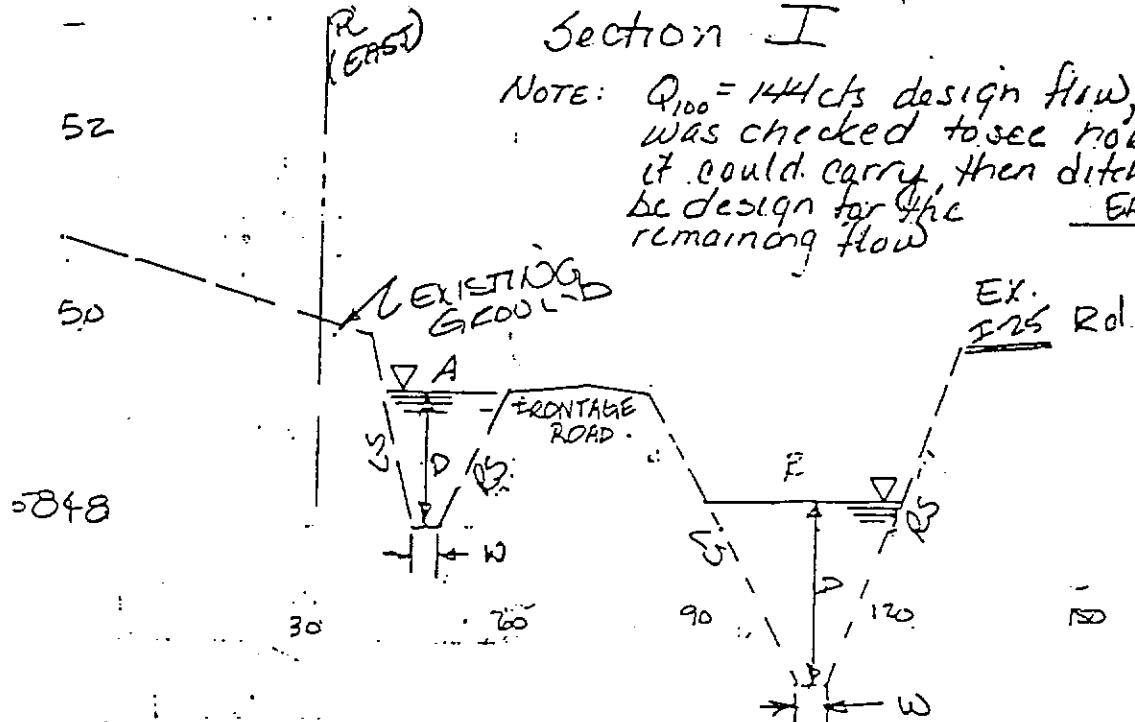 Section I
PL
(EAST)
NOTE: Q100 = 144 cfs design flow,
was checked to see how
it could carry, then ditch
be design for the
remaining flow
52
50
5848
EXISTING
GROUND
EX.
I-25 Rd.
A
FRONTAGE
ROAD.
E
LS
D
RS
W
LS
D
RS
W
30
60
90
120
150